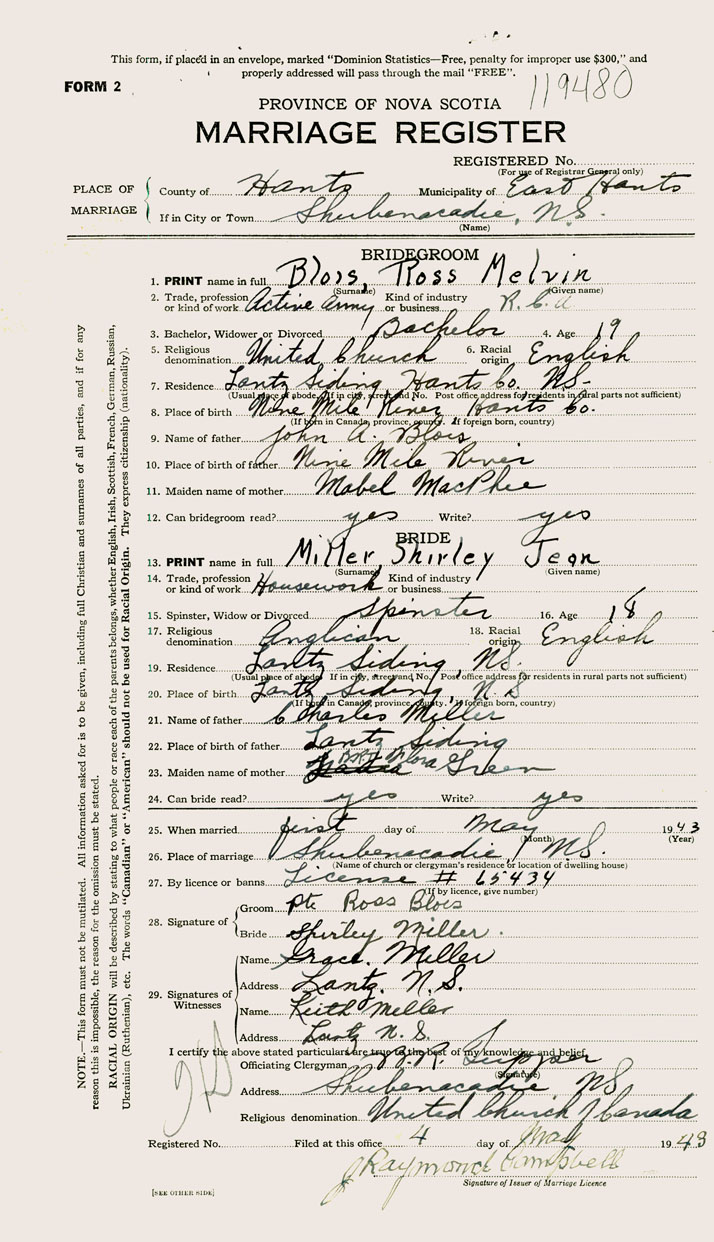 This form, if placed in an envelope, marked "Dominion Statistics—Free, penalty for improper use $300," and
properly addressed will pass through the mail "FREE".
FORM 2
119480
PROVINCE OF NOVA SCOTIA
MARRIAGE REGISTER
REGISTERED No.
(For use of Registrar General only)
PLACE OF MARRIAGE
County of Hants Municipality of East Hants
If in City or Town Shubenacadie, N.S.
(Name)
BRIDEGROOM
1. PRINT name in full Blois, Ross Melvin
(Surname) (Given name)
2. Trade, profession or kind of work Active Army Kind of industry or business R.C.A
3. Bachelor, Widower or Divorced Bachelor 4. Age 19
5. Religious denomination United Church 6. Racial origin English
7. Residence Lantz Siding Hants Co. NS-
(Usual place of abode. If in city, street and No. Post office address for residents in rural parts not sufficient)
8. Place of birth Nine Mile River Hants Co.
(If born in Canada, province, county. If foreign born, country)
9. Name of father John A. Blois
10. Place of birth of father Nine Mile River
11. Maiden name of mother Mabel MacPhee
12. Can bridegroom read? yes Write? yes
BRIDE
13. PRINT name in full Miller Shirley Jean
(Surname) (Given name)
14. Trade, profession or kind of work Housework Kind of industry or business
15. Spinster, Widow or Divorced Spinster 16. Age 18
17. Religious denomination Anglican 18. Racial origin English
19. Residence Lantz Siding, NS.
(Usual place of abode. If in city, street and No. Post office address for residents in rural parts not sufficient)
20. Place of birth Lantz Siding, N.S
(If born in Canada, province, county. If foreign born, country)
21. Name of father Charles Miller
22. Place of birth of father Lantz Siding
23. Maiden name of mother Flora Green
24. Can bride read? yes Write? yes
25. When married first day of May 1943
(Month) (Year)
26. Place of marriage Shubenacadie, NS.
(Name of church or clergyman's residence or location of dwelling house)
27. By licence or banns License # 65434
(If by licence, give number)
28. Signature of
Groom Pte Ross Blois
Bride Shirley Miller.
29. Signatures of Witnesses
Name Grace Miller
Address Lantz, N.S.
Name Keith Miller
Address Lantz N.S.
I certify the above stated particulars are true to the best of my knowledge and belief.
Officiating Clergyman
(Signature)
Address Shubenacadie NS
Religious denomination United Church / Canada
Registered No. Filed at this office 4 day of May 1943
J Raymond Campbell
Signature of Issuer of Marriage Licence
[SEE OTHER SIDE]
NOTE.—This form must not be mutilated. All information asked for is to be given, including full Christian and surnames of all parties, and if for any
reason this is impossible, the reason for the omission must be stated.
RACIAL ORIGIN will be described by stating to what people or race each of the parents belongs, whether English, Irish, Scottish, French, German, Russian,
Ukrainian (Ruthenian), etc. The words "Canadian" or "American" should not be used for Racial Origin. They express citizenship (nationality).